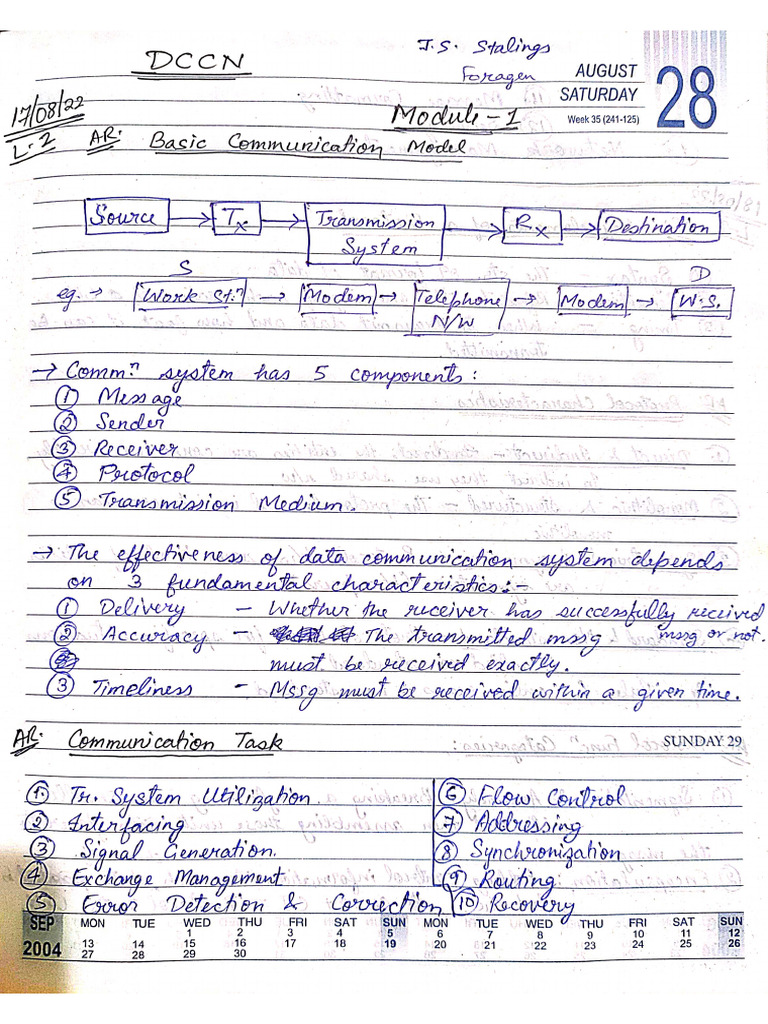 DCCN
J.S. Stalings
Foragen
AUGUST
SATURDAY
Week 35 (241-125)
28
17/08/22
Module-1
L.2 AR: Basic Communication Model
Source → Tx → Transmission System → Rx → Destination
S D
eg. → Work St.ⁿ → Modem → Telephone N/W → Modem → W.S.
→ Commⁿ system has 5 components:
① Message
② Sender
③ Receiver
④ Protocol
⑤ Transmission Medium.
→ The effectiveness of data communication system depends
on 3 fundamental characteristics:-
① Delivery - Whether the receiver has successfully received
mssg or not.
② Accuracy - The transmitted mssg
must be received exactly.
③ Timeliness - Mssg must be received within a given time.
AR: Communication Task
SUNDAY 29
①. Tr. System Utilization
② Interfacing
③ Signal Generation.
④ Exchange Management
⑤ Error Detection & Correction
⑥ Flow Control
⑦ Addressing
⑧ Synchronization
⑨ Routing
⑩ Recovery
SEP 2004
MON TUE WED THU FRI SAT SUN MON TUE WED THU FRI SAT SUN
1 2 3 4 5 6 7 8 9 10 11 12
13 14 15 16 17 18 19 20 21 22 23 24 25 26
27 28 29 30